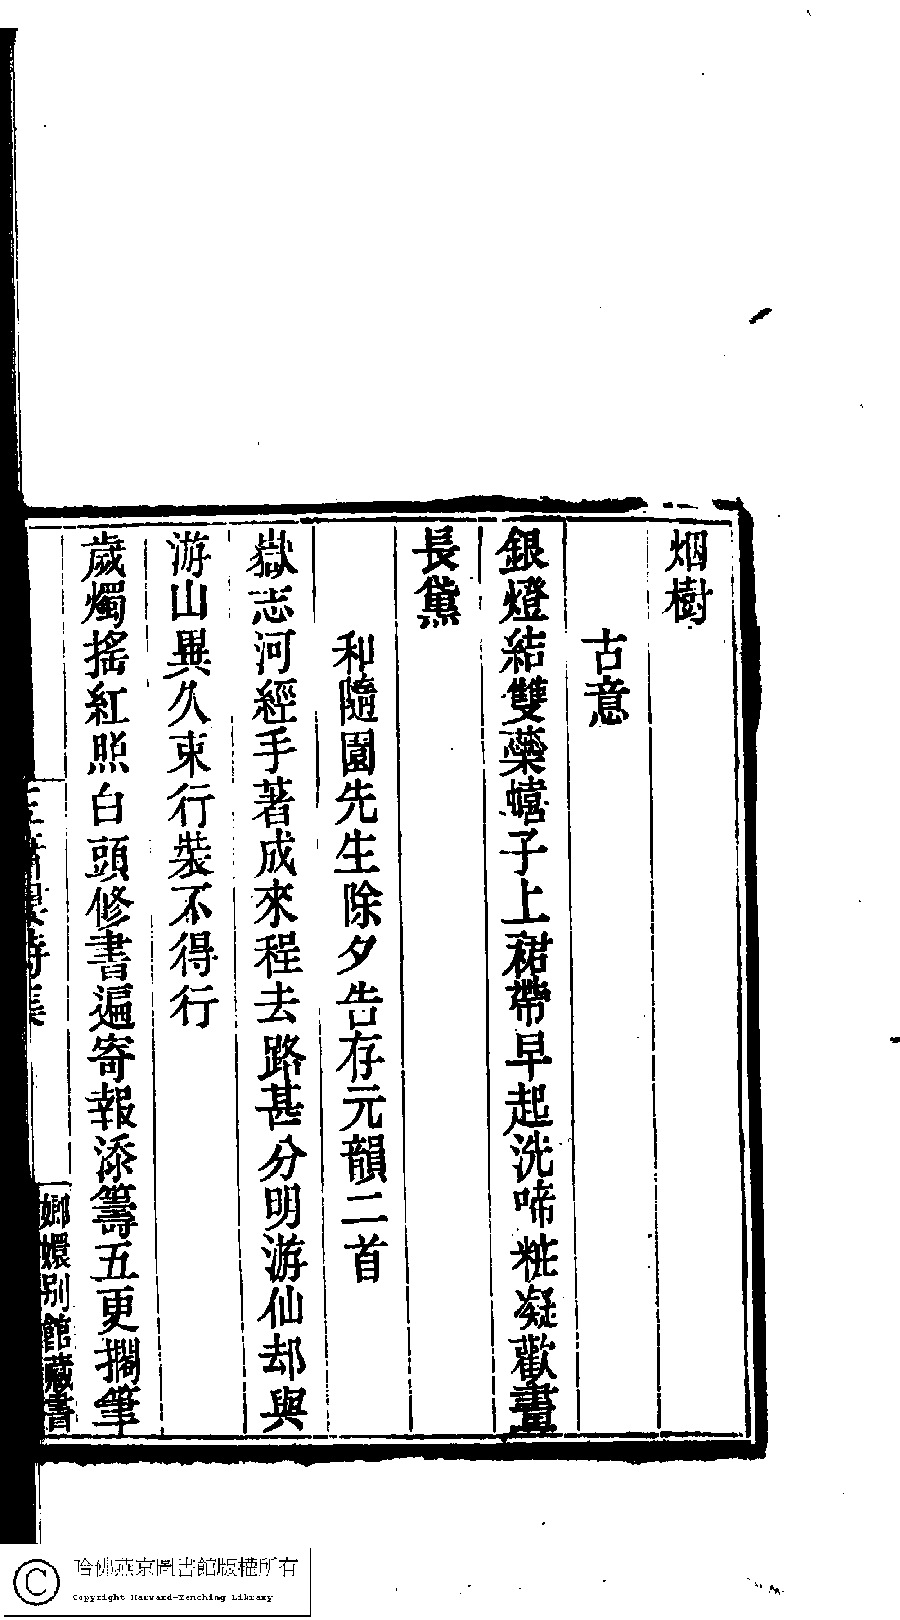 烟樹
古意
銀燈結雙蘂蟢子上裙帶早起洗啼粧凝歡畫
長黛
和隨園先生除夕告存元韻二首
嶽志河經手著成來程去路甚分明游仙却與
游山異久束行裝不得行
歲燭搖紅照白頭修書遍寄報添籌五更擱筆
嫏嬛别館藏書
哈佛燕京圖書館版權所有
Copyright Harvard-Yenching Library